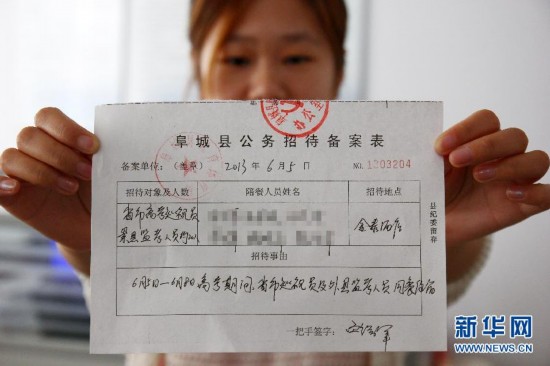 阜城县公务招待备案表
备案单位：（盖章） 2013年6月5日 NO. 1003204
招待对象及人数 陪餐人员姓名 招待地点
省市高考巡视员
监考人员
招待事由
6月5日—6月8日高考期间，省市巡视员及外县监考人员用餐
一把手签字：
县纪委留存
新华网
WWW.NEWS.CN